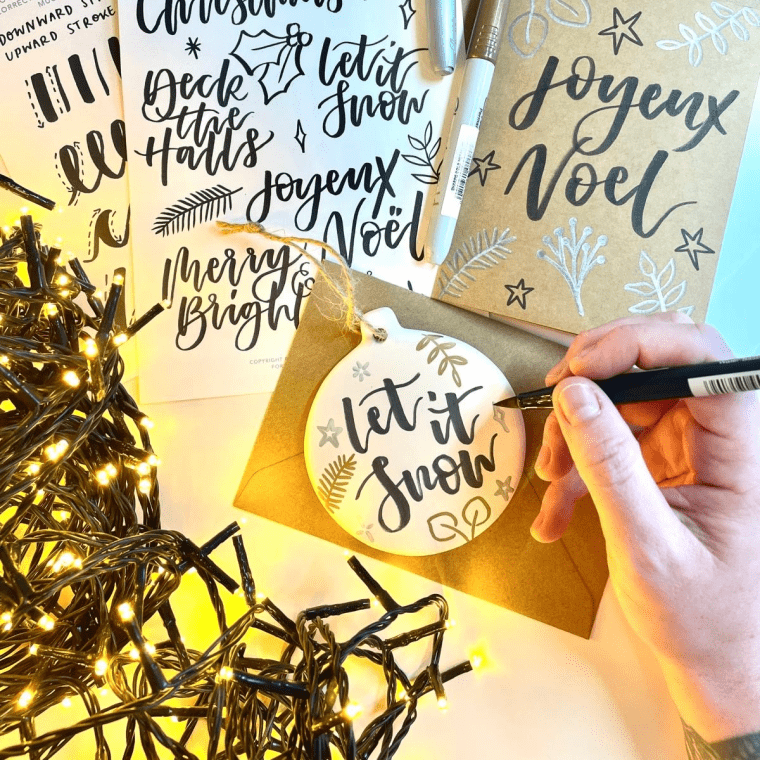 DOWNWARD
UPWARD STROKE
Christmas
Deck
the
Halls
let it
Snow
Joyeux
Noël
Merry &
Bright
COPYRIGHT
FOR
Joyeux
Noel
let it
Snow